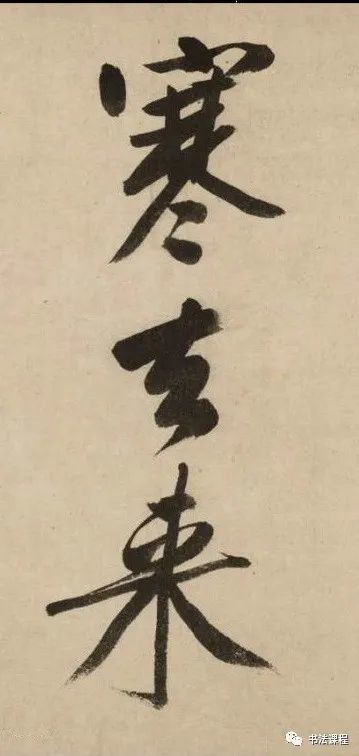 寒去来
书法课程